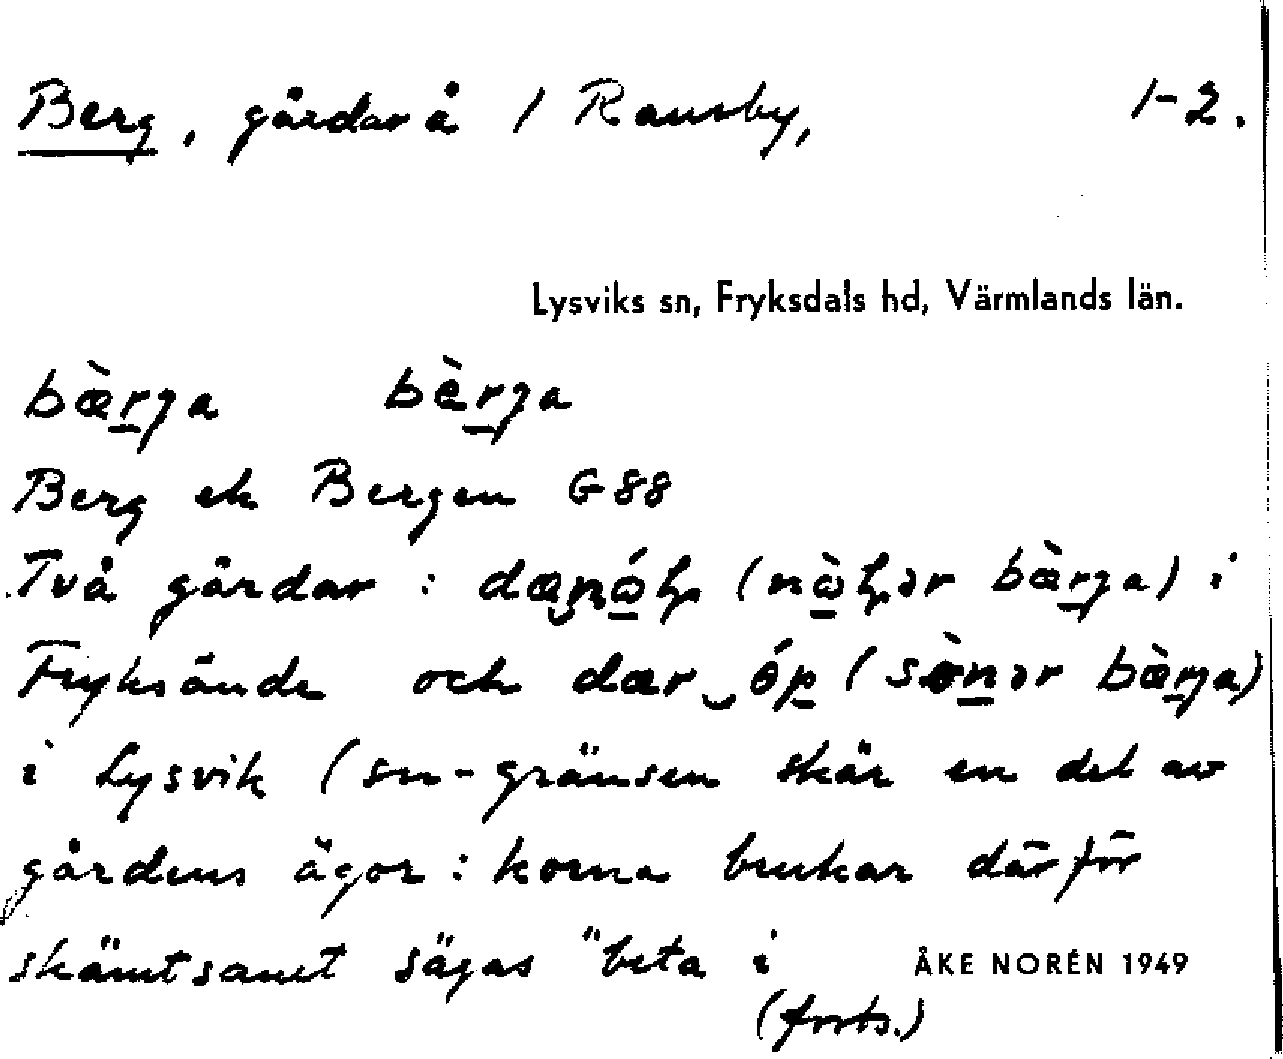 Berg, gårdar å 1 Ransby, 1-2.
Lysviks sn, Fryksdals hd, Värmlands län.
bæ̀rja bèrja
Berg ek Bergen G88
Två gårdar : (bæ̀rja) i
Fryksände och dær‿óp (bæ̀rja)
i Lysvik (sn-gränsen skär en del av
gårdens ägor : korna brukar därför
skämtsamt sägas "beta i
ÅKE NORÉN 1949
(forts.)